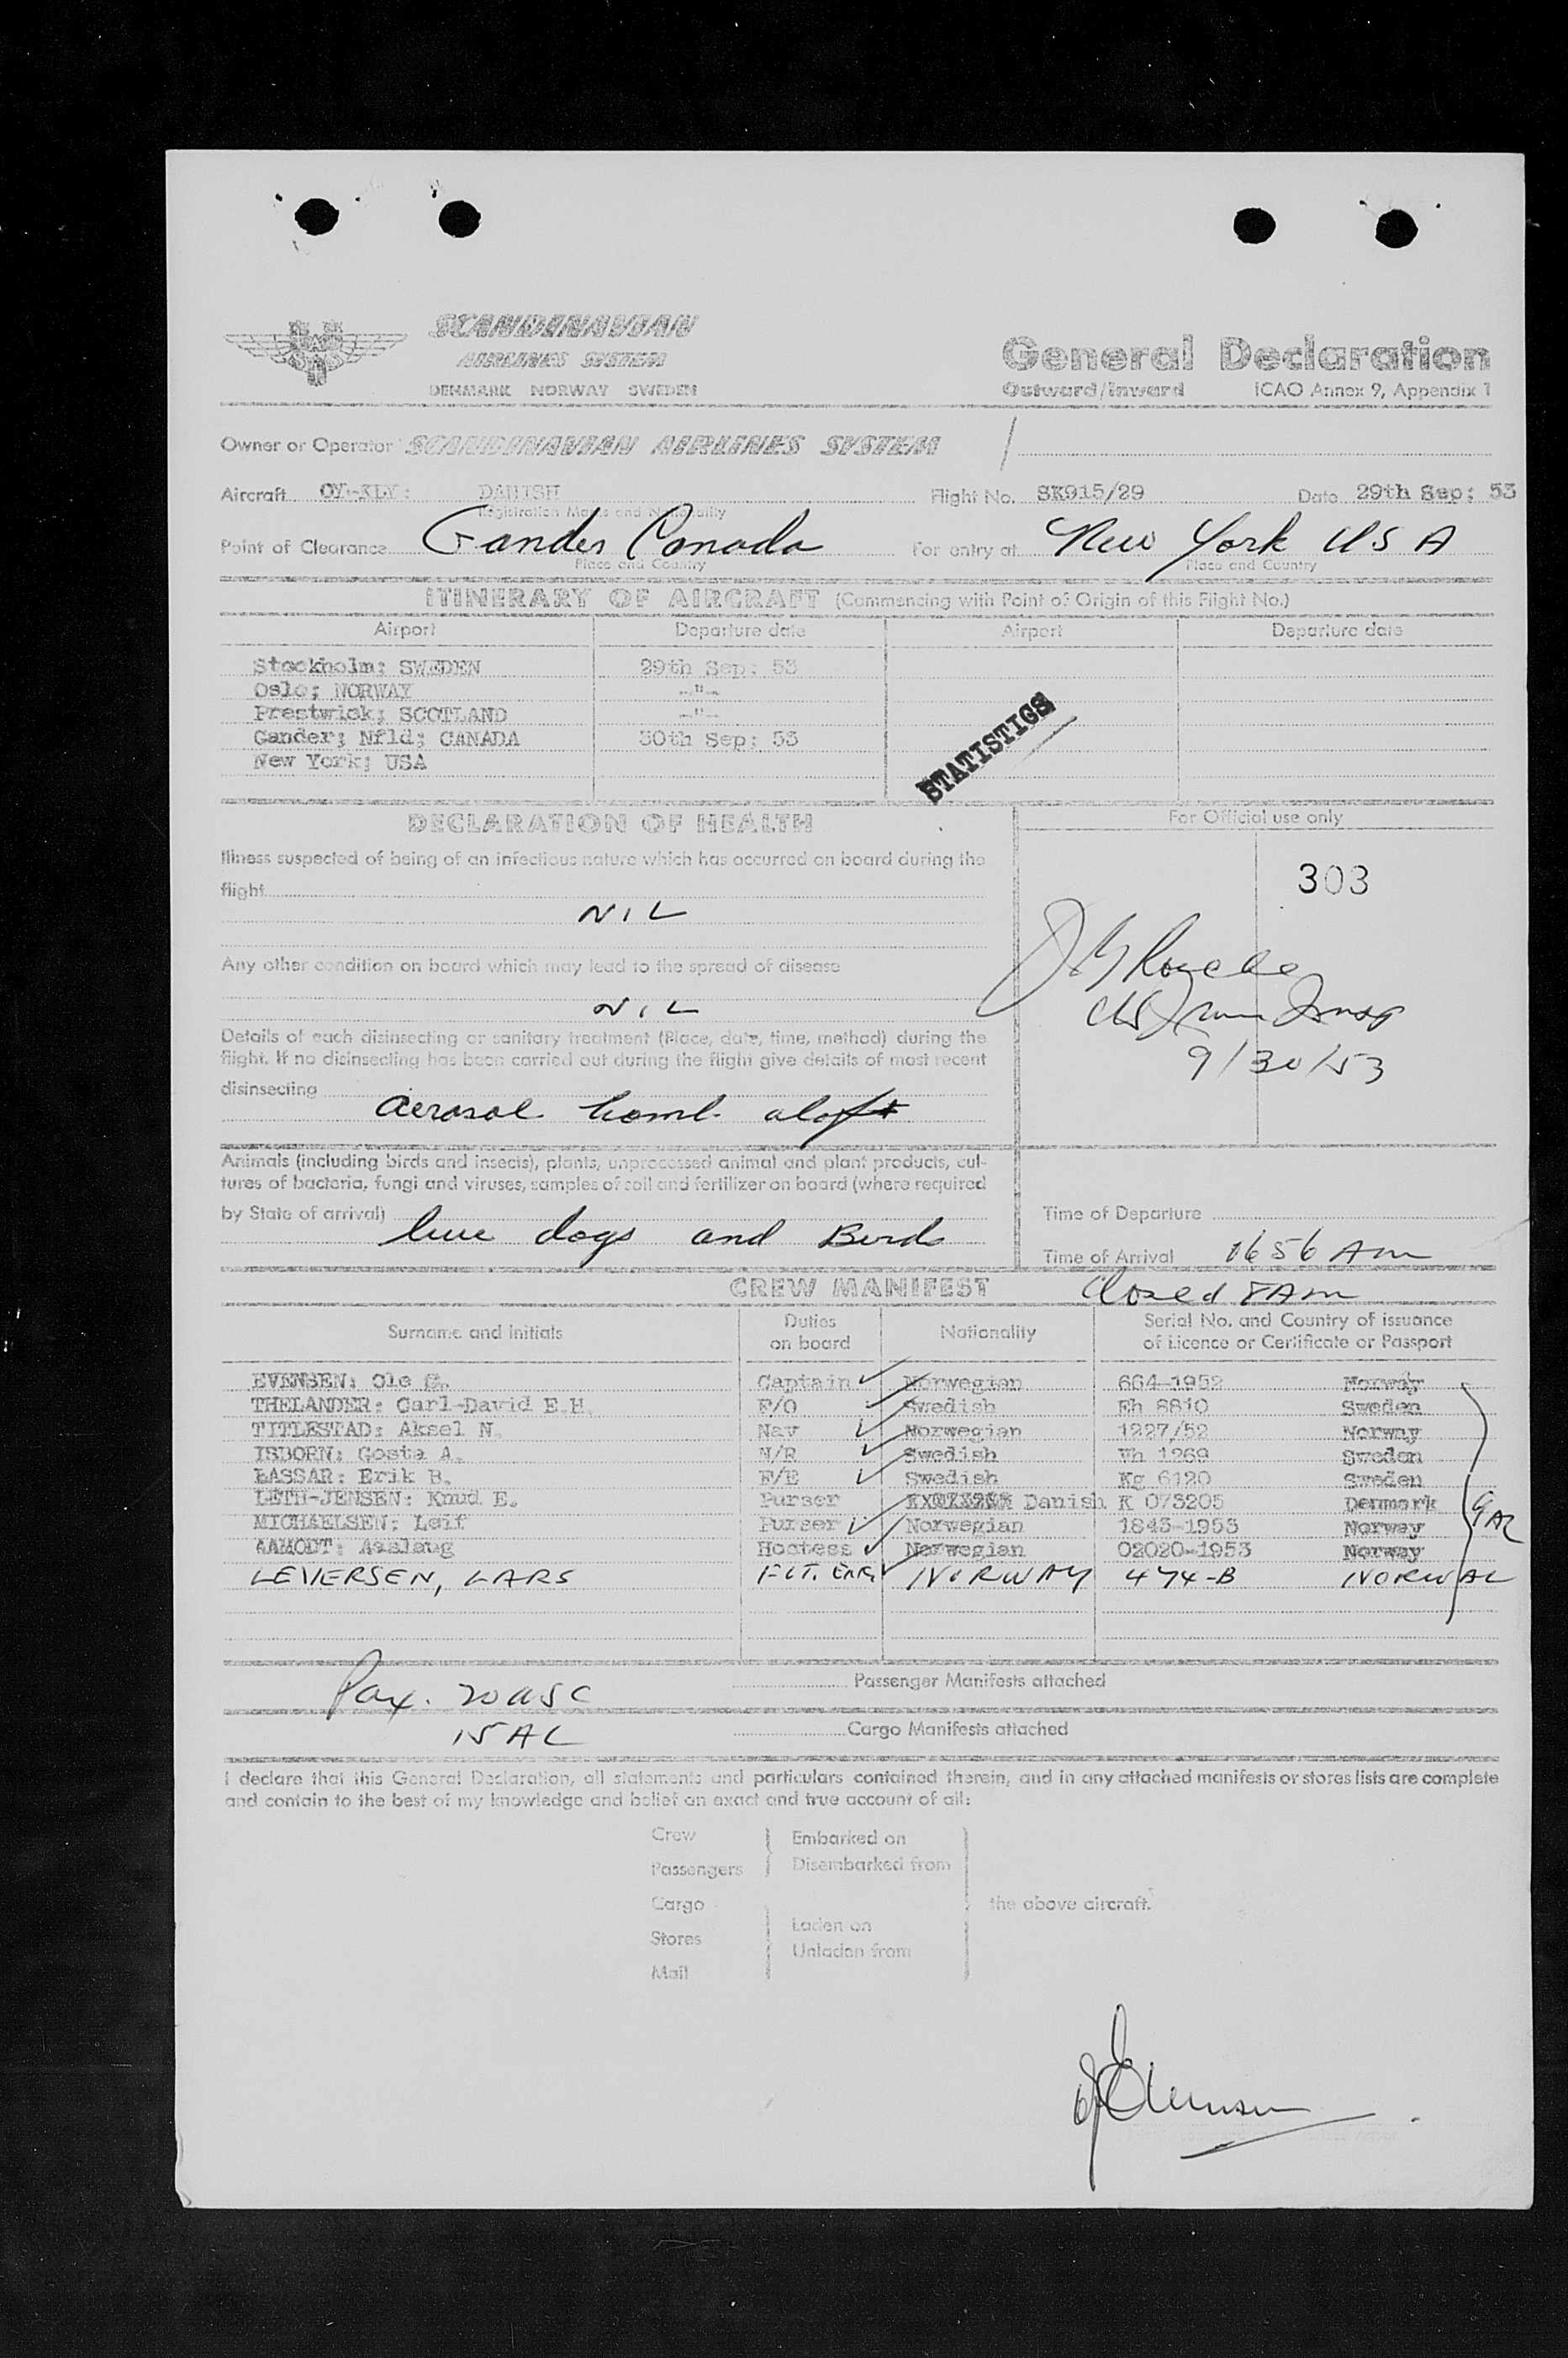 SCANDINAVIAN
AIRLINES SYSTEM
DENMARK NORWAY SWEDEN
General Declaration
Outward/Inward ICAO Annex 9, Appendix 1
Owner or Operator SCANDINAVIAN AIRLINES SYSTEM
Aircraft OY-KLY: DANISH Flight No. SK915/29 Date 29th Sep: 53
Registration Marks and Nationality
Point of Clearance Gander Canada For entry at New York USA
Place and Country Place and Country
ITINERARY OF AIRCRAFT (Commencing with Point of Origin of this Flight No.)
Airport Departure date Airport Departure date
Stockholm; SWEDEN 29th Sep: 53
Oslo; NORWAY -"-
Prestwick; SCOTLAND -"-
Gander; Nfld; CANADA 30th Sep: 53
New York; USA
STATISTICS
DECLARATION OF HEALTH
For Official use only
Illness suspected of being of an infectious nature which has occurred on board during the
flight
NIL
303
Any other condition on board which may lead to the spread of disease
NIL
9/30/53
Details of each disinsecting or sanitary treatment (Place, date, time, method) during the
flight. If no disinsecting has been carried out during the flight give details of most recent
disinsecting
Aerosol bomb aloft
Animals (including birds and insects), plants, unprocessed animal and plant products, cul-
tures of bacteria, fungi and viruses, samples of soil and fertilizer on board (where required
by State of arrival)
live dogs and Birds
Time of Departure
Time of Arrival 0656 Am
Closed 8 Am
CREW MANIFEST
Surname and initials Duties on board Nationality Serial No. and Country of issuance of Licence or Certificate or Passport
EVENSEN: Ole G. Captain Norwegian 664-1952 Norway
THELANDER: Carl-David E.H. F/O Swedish Fh 8810 Sweden
TITLESTAD: Aksel N. Nav Norwegian 1227/52 Norway
ISBORN: Gosta A. N/R Swedish Vh 1269 Sweden
BASSAR: Erik B. F/E Swedish Kg 6120 Sweden
LETH-JENSEN: Knud E. Purser Danish K 073205 Denmark
MICHAELSEN: Leif Purser Norwegian 1843-1953 Norway
AAMODT: Aaslaug Hostess Norwegian 02020-1953 Norway
LEVERSEN, LARS FLT. ENG. NORWAY 474-B NORWAY
Pax. 20 USC
Passenger Manifests attached
15 AL
Cargo Manifests attached
I declare that this General Declaration, all statements and particulars contained therein, and in any attached manifests or stores lists are complete
and contain to the best of my knowledge and belief an exact and true account of all:
Crew Embarked on
Passengers Disembarked from
Cargo the above aircraft.
Laden on
Stores
Unladen from
Mail